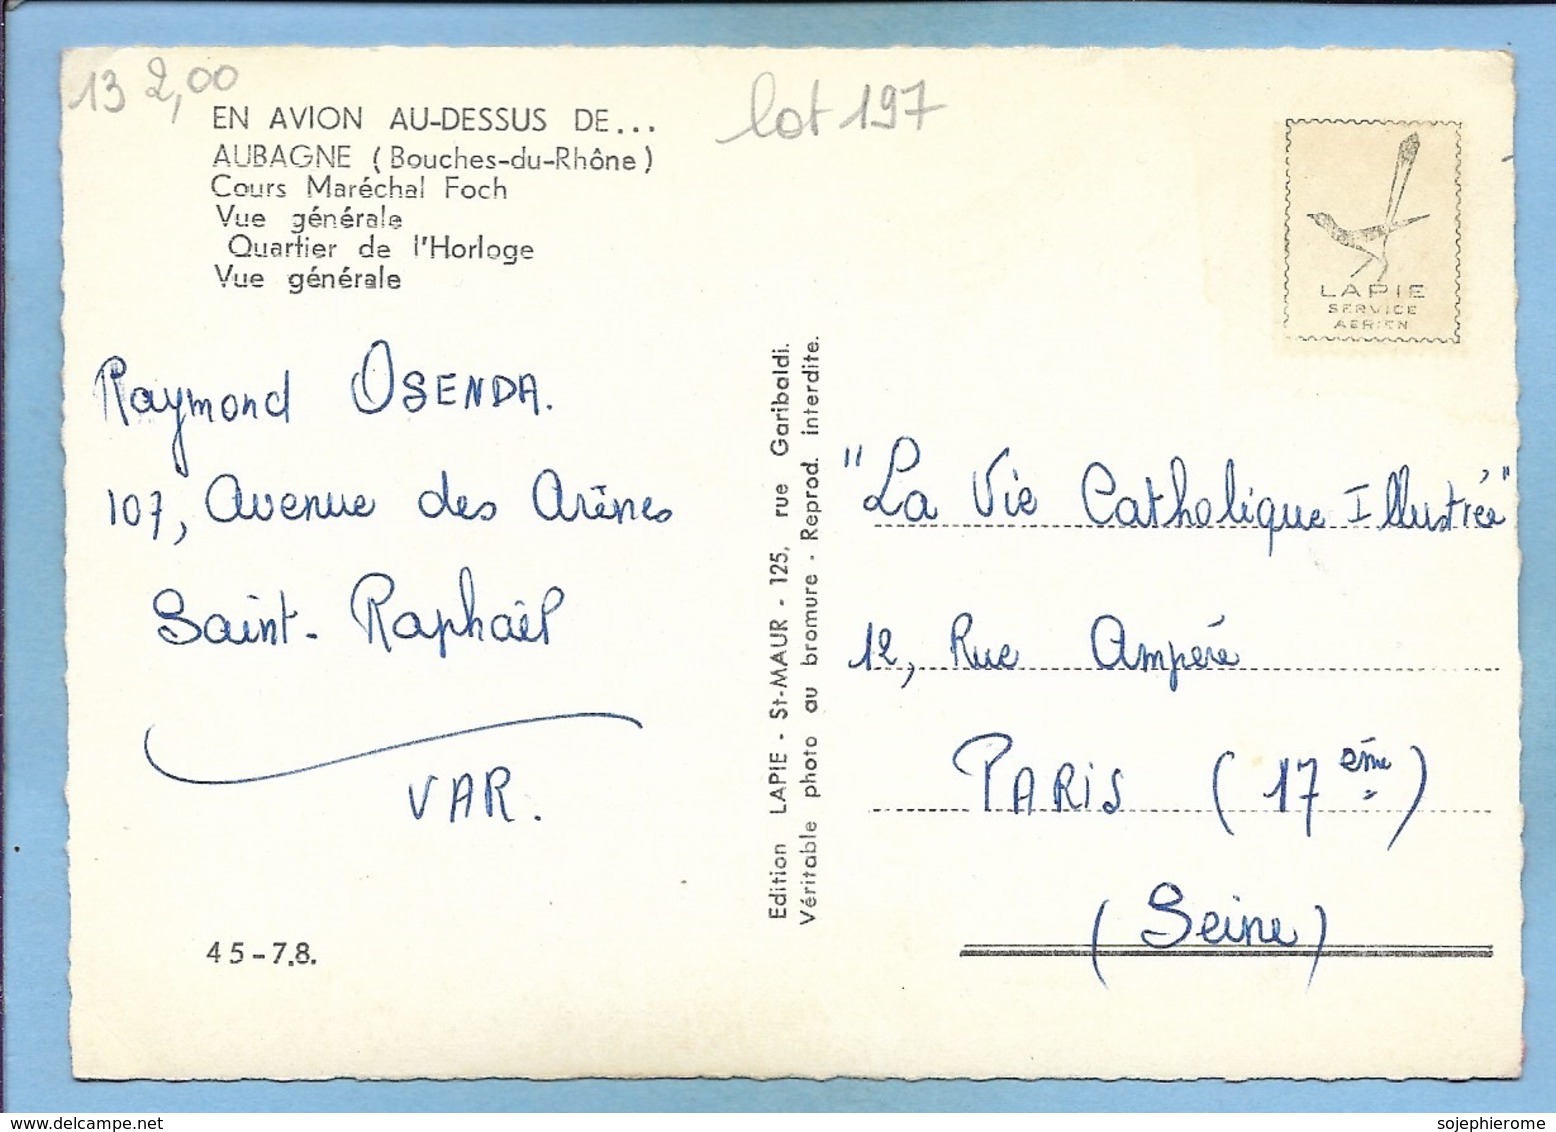 13 2,00
lot 197
EN AVION AU-DESSUS DE...
AUBAGNE (Bouches-du-Rhône)
Cours Maréchal Foch
Vue générale
Quartier de l'Horloge
Vue générale
LAPIE
SERVICE
AERIEN
Raymond OSENDA.
107, Avenue des Arènes
Saint-Raphaël
VAR.
45-7.8.
Edition LAPIE - St-MAUR - 125, rue Garibaldi.
Véritable photo au bromure - Reprod. interdite.
"La Vie Catholique Illustrée"
12, Rue Ampère
PARIS (17ème)
(Seine)
delcampe.net
sojephierome